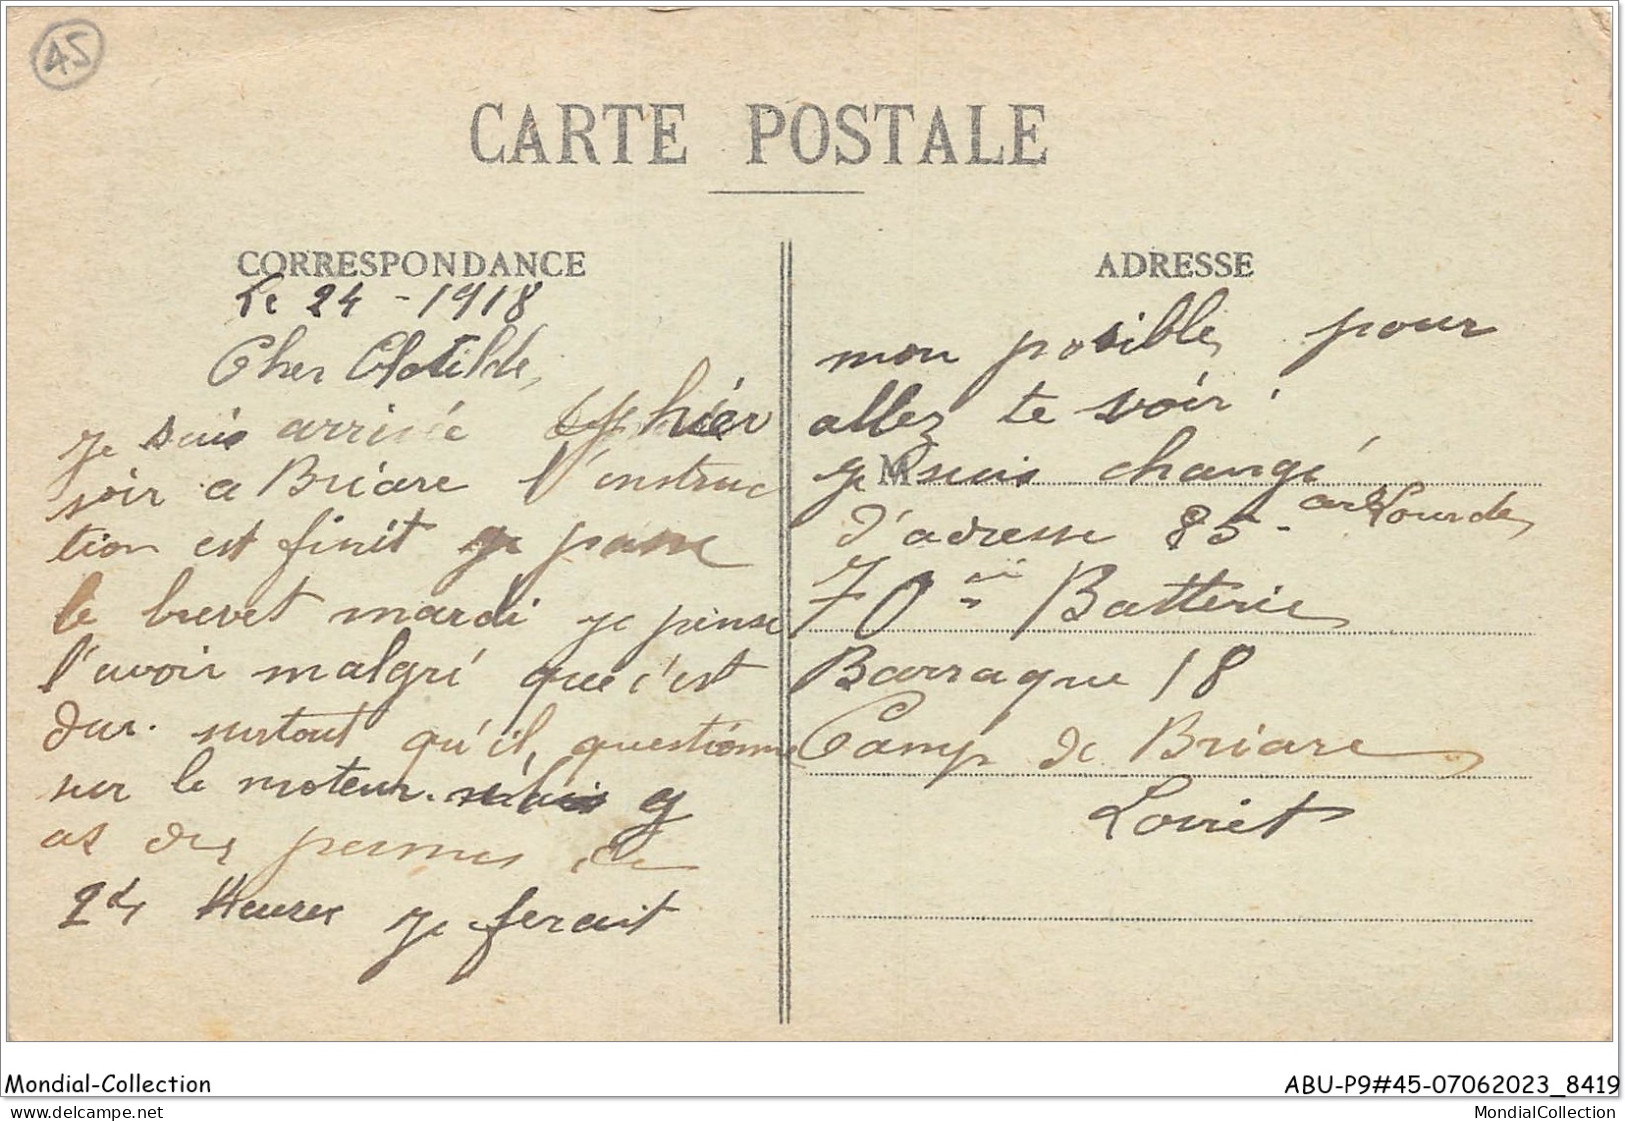 45
CARTE POSTALE
CORRESPONDANCE
Le 24 - 1918
Cher Clotilde,
je suis arrivée hier
soir a Briare l'instruc
tion est finit je passe
le brevet mardi je pense
l'avoir malgré que c'est
dur. surtout qu'il questionne
sur le moteur. si y
as des permes de
24 Heures je ferait
ADRESSE
mon posible pour
allez te voir.
M
je suis changé
d'adresse 85e artie Lourde
70me Batterie
Barraque 18
Camp de Briare
Loiret
Mondial-Collection
ABU-P9#45-07062023_8419
www.delcampe.net
MondialCollection